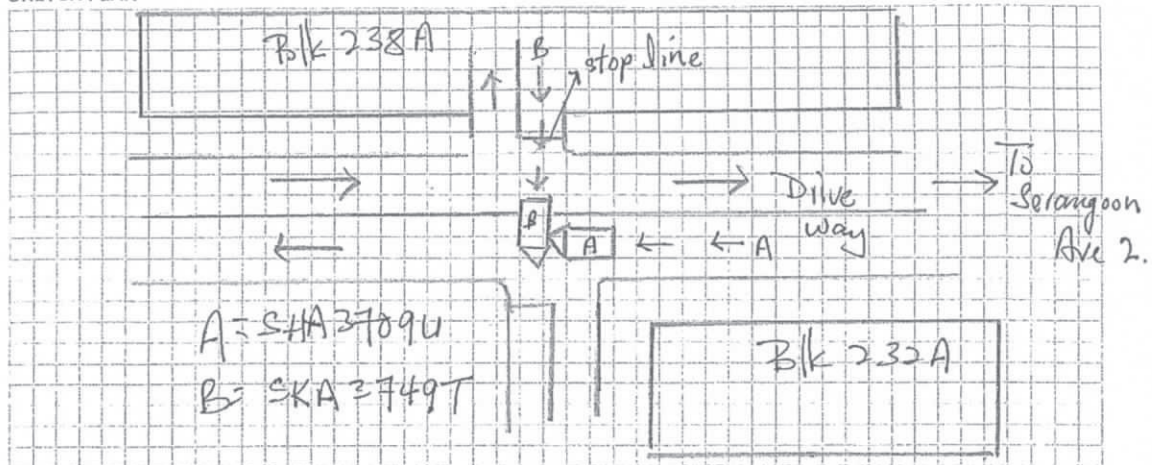 Blk 238A
B
stop line
Drive way
To Serangoon Ave 2.
B
A
A
A = SHA3709U
B = SKA3749T
Blk 232A